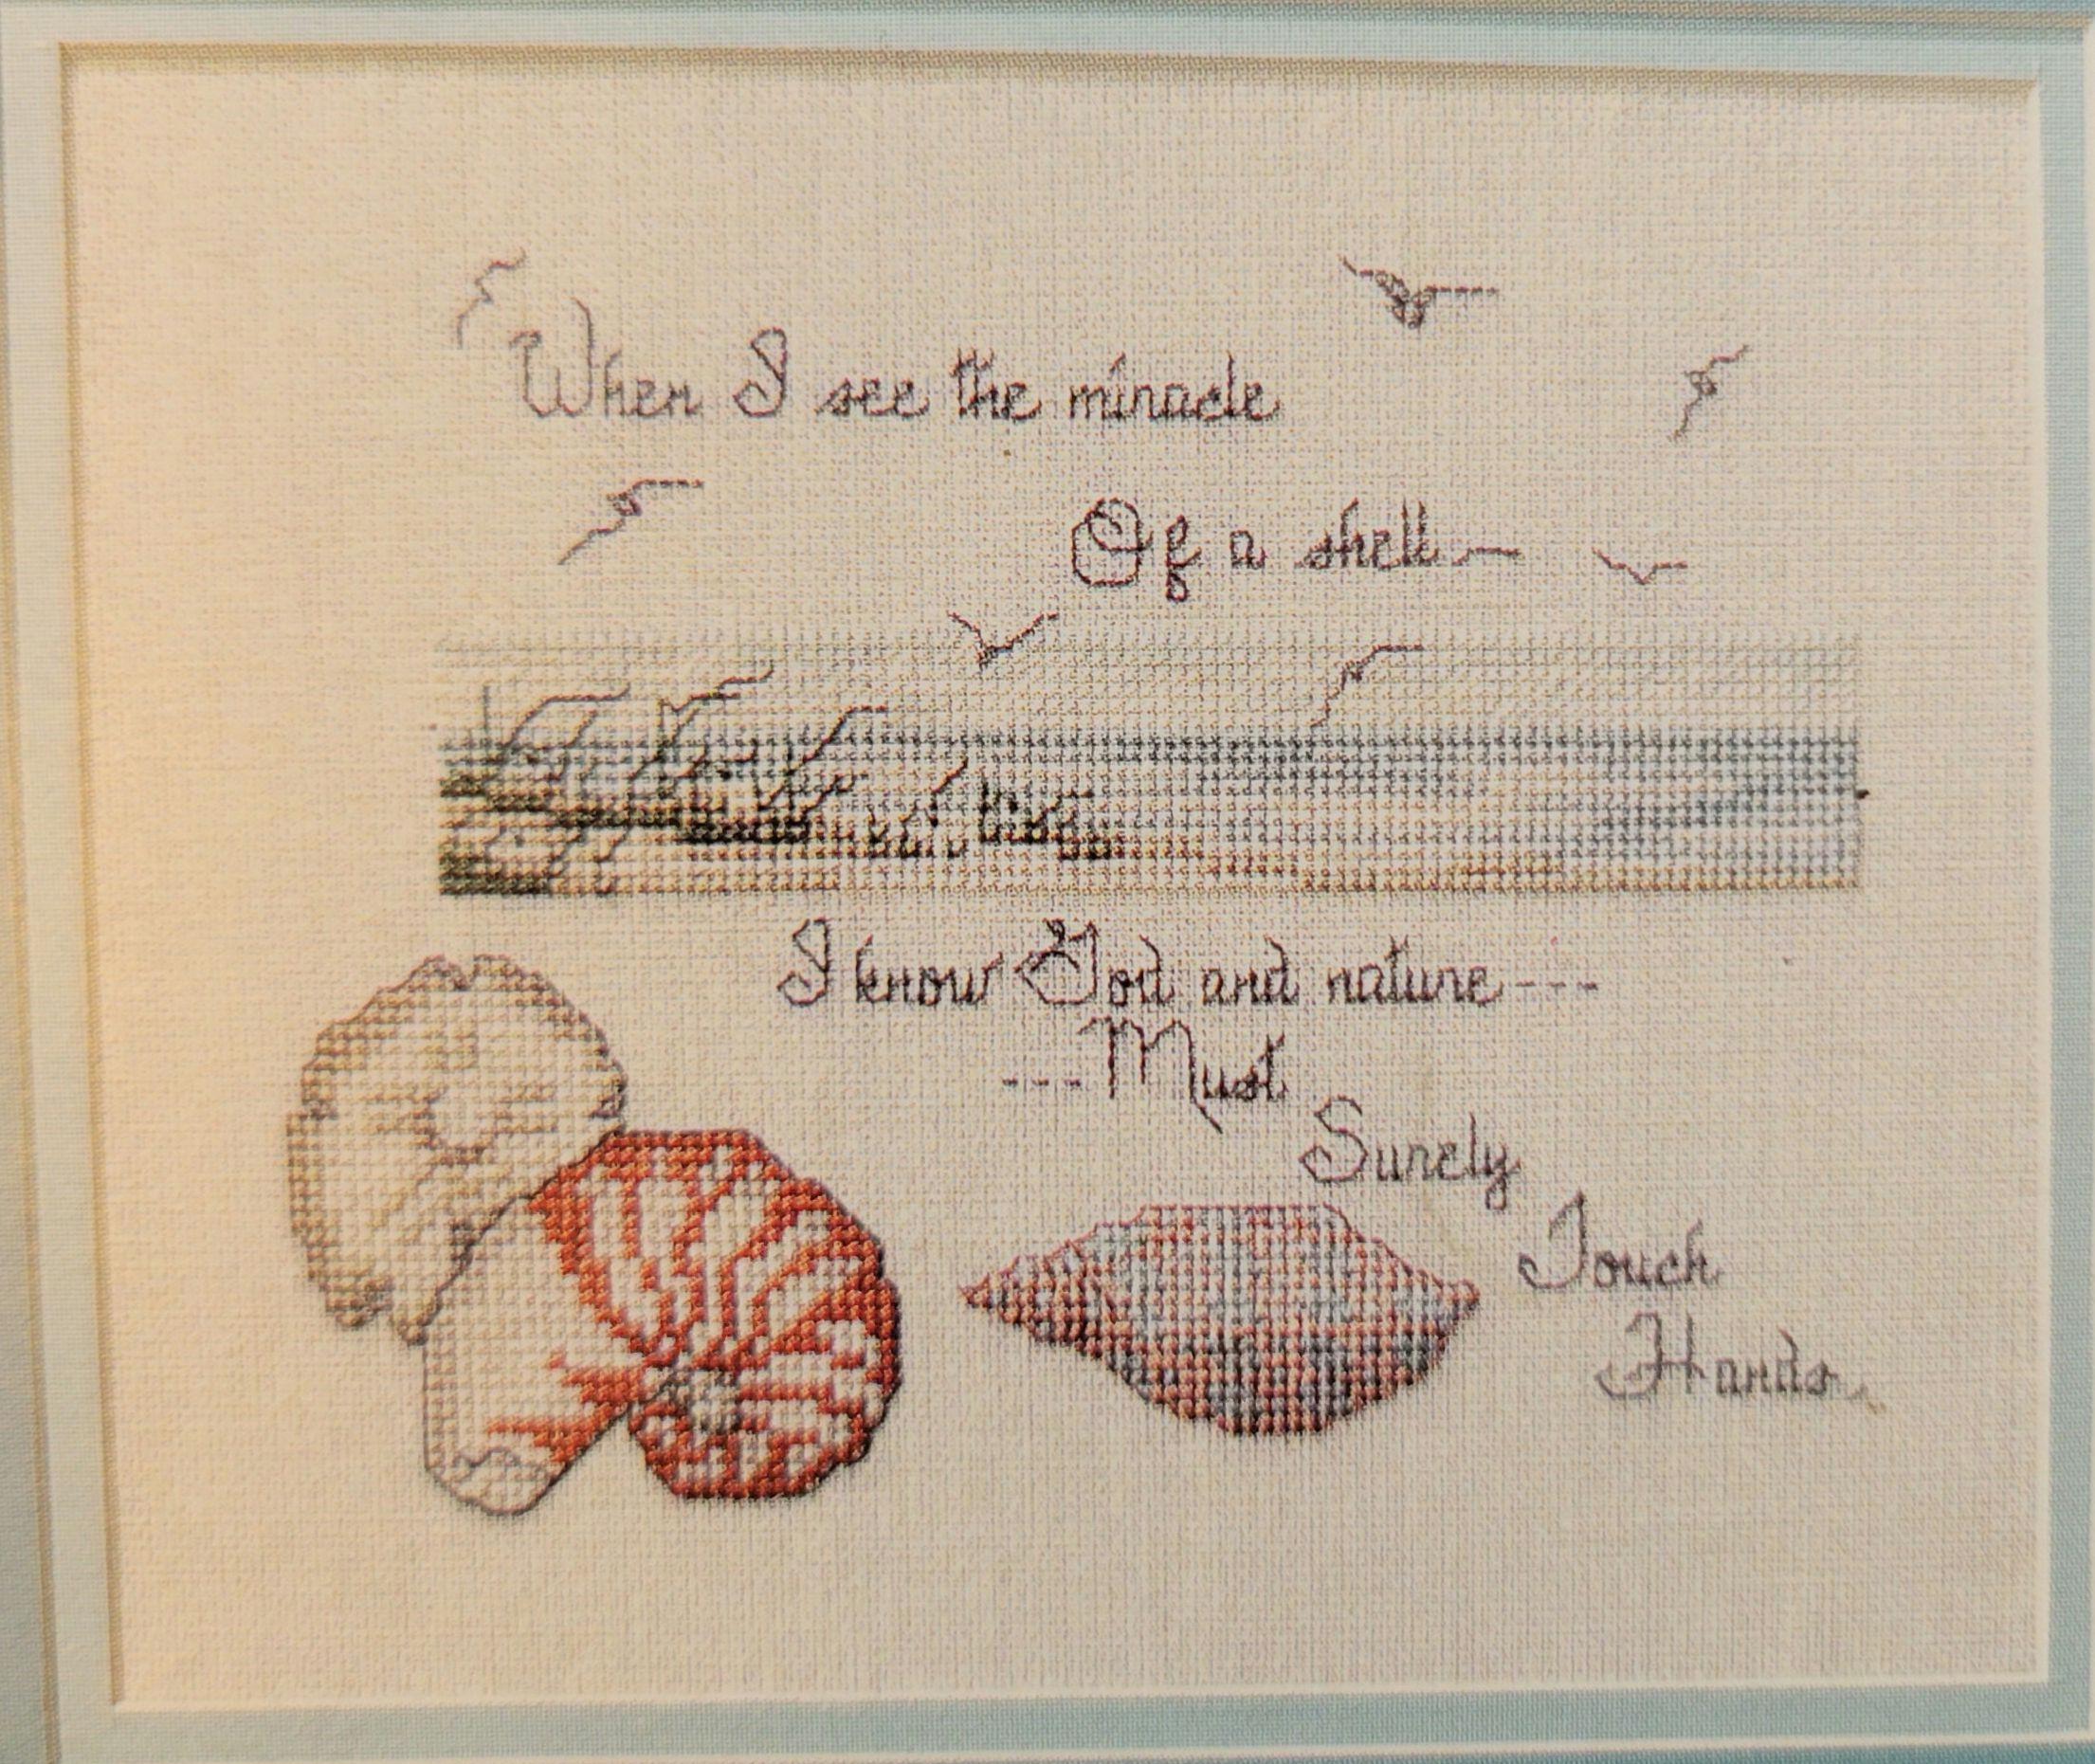 When I see the miracle
Of a shell—
I know God and nature---
---Must
Surely
Touch
Hands.